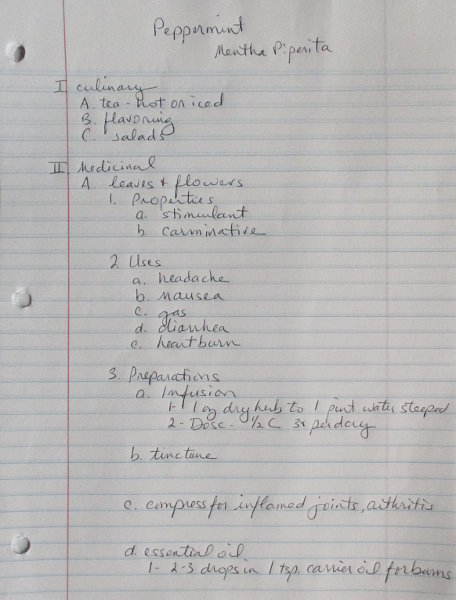 Peppermint
Mentha Piperita
I culinary
A. tea - hot or iced
B. flavoring
C. salads
II Medicinal
A. leaves & flowers
1. Properties
a. stimulant
b. carminative
2 Uses
a. headache
b. nausea
c. gas
d. diarrhea
e. heartburn
3. Preparations
a. Infusion
1- 1 oz dry herb to 1 pint water steeped
2- Dose - 1/2 C 3x per day
b. tincture
c. compress for inflamed joints, arthritis
d. essential oil
1- 2-3 drops in 1 tsp. carrier oil for burns